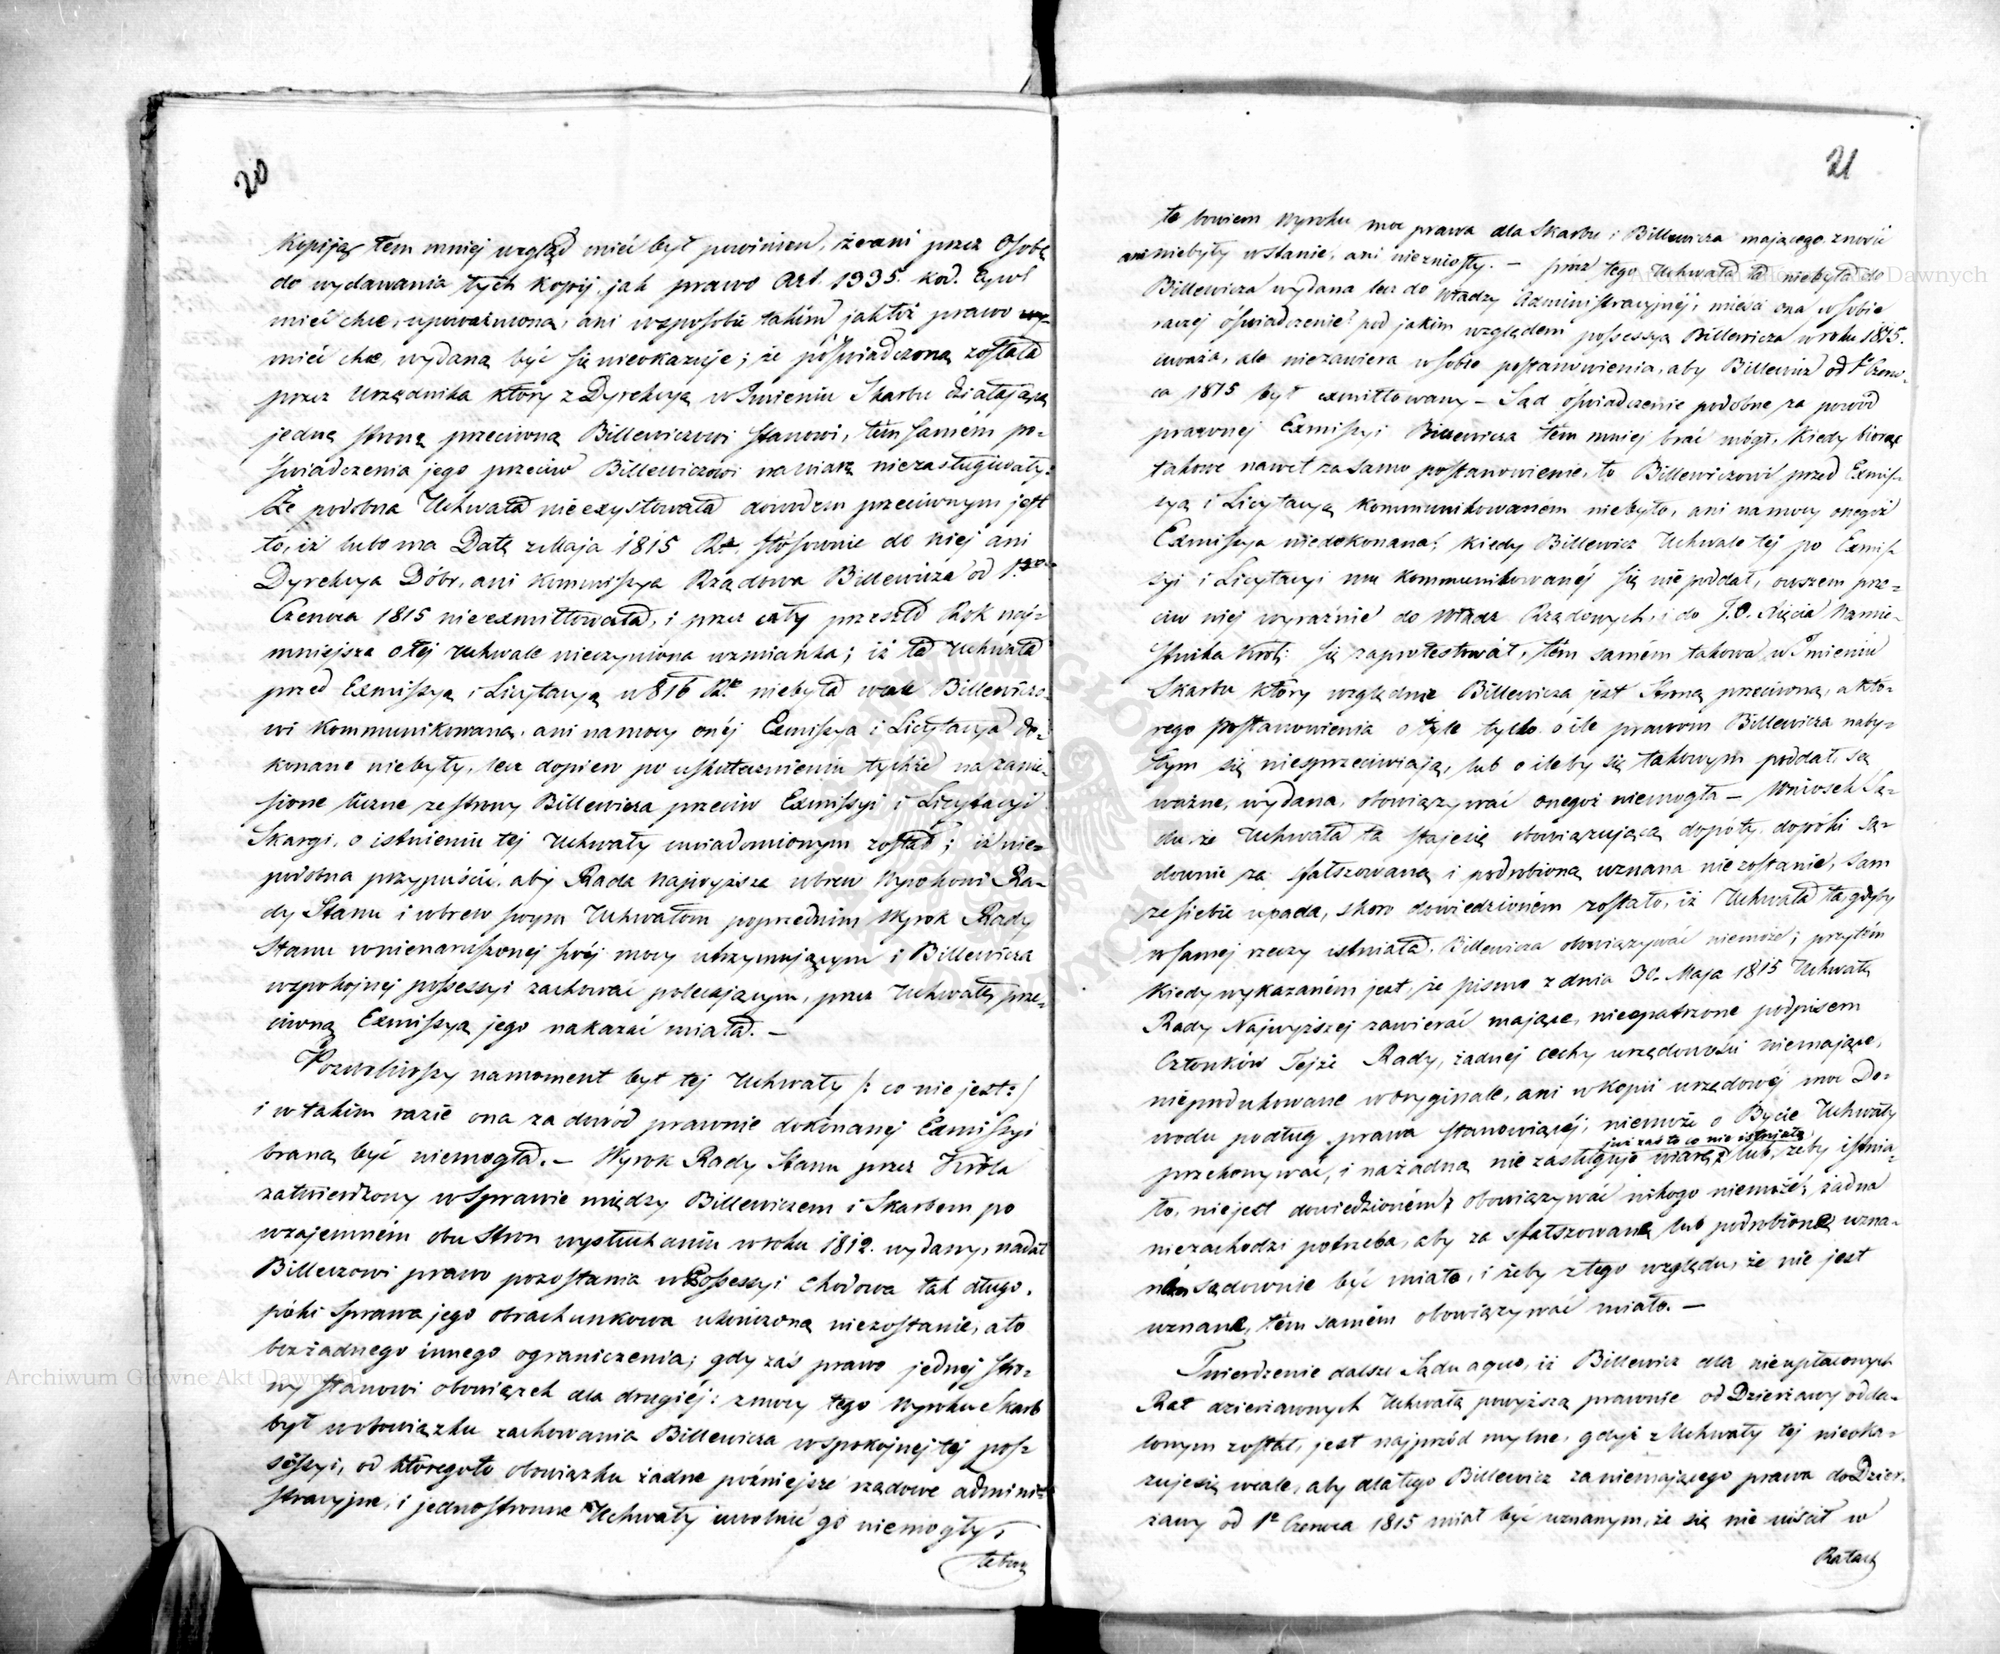 20
Kopiją tem mniej wzgląd mieć był powinien, że ani przez Osobę
do wydawania tych kopij, jak prawo Art. 1335. Kod. Cywl
mieć chce, upoważnioną, ani w sposobie takim jak też prawo
mieć chce, wydaną być się nieokazuje; że poświadczoną została
przez Urzędnika który z Dyrekcyą w Imieniu Skarbu działającą
jedną stronę przeciwną Billewiczowi stanowi, tem samém po-
świadczenia jego przeciw Billewiczowi na wiarę niezasługiwały:
Że podobna Uchwała nieexystowała dowodem przeciwnym jest
to, iż lubo ma Datę z Maja 1815 Rk. stósownie do niej ani
Dyrekcya Dóbr, ani Kommissya Rządowa Billewicza od 1.go
Czerwca 1815 nieexmittowała, i przez cały przeszło Rok naj-
mniejsza o téj Uchwale nieczyniona wzmianka; iż ta Uchwała
przed Exmissyą i Licytacyą w 816 Rk. niebyła wcale Billewiczo-
wi kommunikowaną, ani na mocy onéj Exmissya i Licytacya do-
konane niebyły, lecz dopiero po uskutecznieniu tychże na zanie-
sione liczne ze strony Billewicza przeciw Exmissyi i Licytacyi
Skargi, o istnieniu tej Uchwały uwiadomionym został; iż nie-
podobna przypuścić, aby Rada Najwyższa wbrew Wyrokowi Ra-
dy Stanu i wbrew swym Uchwałom poprzednim Wyrok Rady
Stanu w nienaruszonej swéj mocy utrzymującym i Billewicza
w spokojnej possessyi zachować polecającym, przez Uchwałę prze-
ciwną Exmissyą jego nakazać miała. —
Pozwoliwszy na moment byt tej Uchwały /: co nie jest :/
i w takim razie ona za dowód prawnie dokonanej Exmissyi
braną być niemogła. — Wyrok Rady Stanu przez Króla
zatwierdzony w Sprawie między Billewiczem i Skarbem po
wzajemném obu Stron wysłuchaniu w roku 1812. wydany, nadał
Billeczowi prawo pozostania w Possessyi Chodowa tak długo,
póki Sprawa jego obrachunkowa ukończoną niezostanie, a to
bez żadnego innego ograniczenia; gdy zaś prawo jednej stro-
ny stanowi obowiązek dla drugiéj: z mocy tego Wyroku Skarb
był w obowiązku zachowania Billewicza w spokojnej tej pos-
sessyi, od któregoto obowiązku żadne późniejsze rządowe admini-
stracyjne, i jednostronne Uchwały uwolnić go niemogły,
te bow
21
te bowiem Wyroku moc prawa dla Skarbu i Billewicza mającego, znosić
ani niebyły w stanie, ani niezniosły. — prócz tego Uchwała ta niebyła do
Billewicza wydana lecz do Władzy Administracyjnéj, mieści ona w sobie
raczej oświadczenie pod jakim względem possessya Billewicza w roku 1815.
uważa, ale niezawiera w sobie postanowienia, aby Billewicz od 1o Czerw-
ca 1815 był exmittowany — Sąd oświadczenie podobne za powód
prawnej Exmissyi Billewicza tem mniej brać mógł, Kiedy biorąc
takowe nawet za samo postanowienie, to Billewiczowi przed Exmis-
syą i Licytacyą kommunikowaném niebyło, ani na mocy onegoż
Exmissya niedokonana, kiedy Billewicz Uchwale téj po Exmis-
syi i Licytacyi mu kommunikowanéj się nie poddał, owszem prze-
ciw niej wyraźnie do Władz Rządowych, i do J.O. Xięcia Namie-
stnika Król: się zaprotestował, tém samém takowa w Imieniu
Skarbu który względnie Billewicza jest Stroną przeciwną, a któ-
rego postanowienia o tyle tylko o ile prawom Billewicza naby-
tym się niesprzeciwiają, lub o ileby się takowym poddał, są
ważne, wydana, obowiązywać onegoż niemogła — Wniosek Są-
du, że Uchwała ta staje się obowiązującą dopóty, dopóki są-
downie za sfałszowaną i podrobioną uznana niezostanie, sam
ze siebie upada, skoro dowiedzioném zostało, iż Uchwała ta, gdyby
w samej rzeczy istniała, Billewicza obowiązywać niemoże; przytém
Kiedy wykazaném jest, że pismo z dnia 30. Maja 1815 Uchwałę
Rady Najwyższej zawierać mające, nieopatrzone podpisem
Członków Tejże Rady, żadnej cechy urzędowości niemające,
nieprodukowane w oryginale, ani w Kopii urzędowéj moc Do-
wodu podług prawa stanowiącéj, niemoże o Bycie Uchwały
przekonywać, i na żadną nie zasługuje wiarę, już zaś to co nie istniało lub, żeby istnia-
ło, niejest dowiedzioném, obowiązywać nikogo niemoże, żadna
niezachodzi potrzeba, aby za sfałszowane lub podrobione uzna-
ném sądownie być miało, i żeby z tego względu, że nie jest
uznane, tém samém obowiązywać miało. —
Twierdzenie dalsze Sądu a quo, iż Billewicz dla nieupłaconych
Rat dzierżawnych Uchwałą powyższą prawnie od Dzierżawy odda-
lonym został, jest najprzód mylne, gdyż z Uchwały téj nieoka-
zuje się wcale, aby dlatego Billewicz za niemającego prawa do Dzier-
żawy od 1o Czerwca 1815 miał być uznanym, że się nie uiścił w
Ratach
Archiwum Główne Akt Dawnych
Archiwum Główne Akt Dawnych